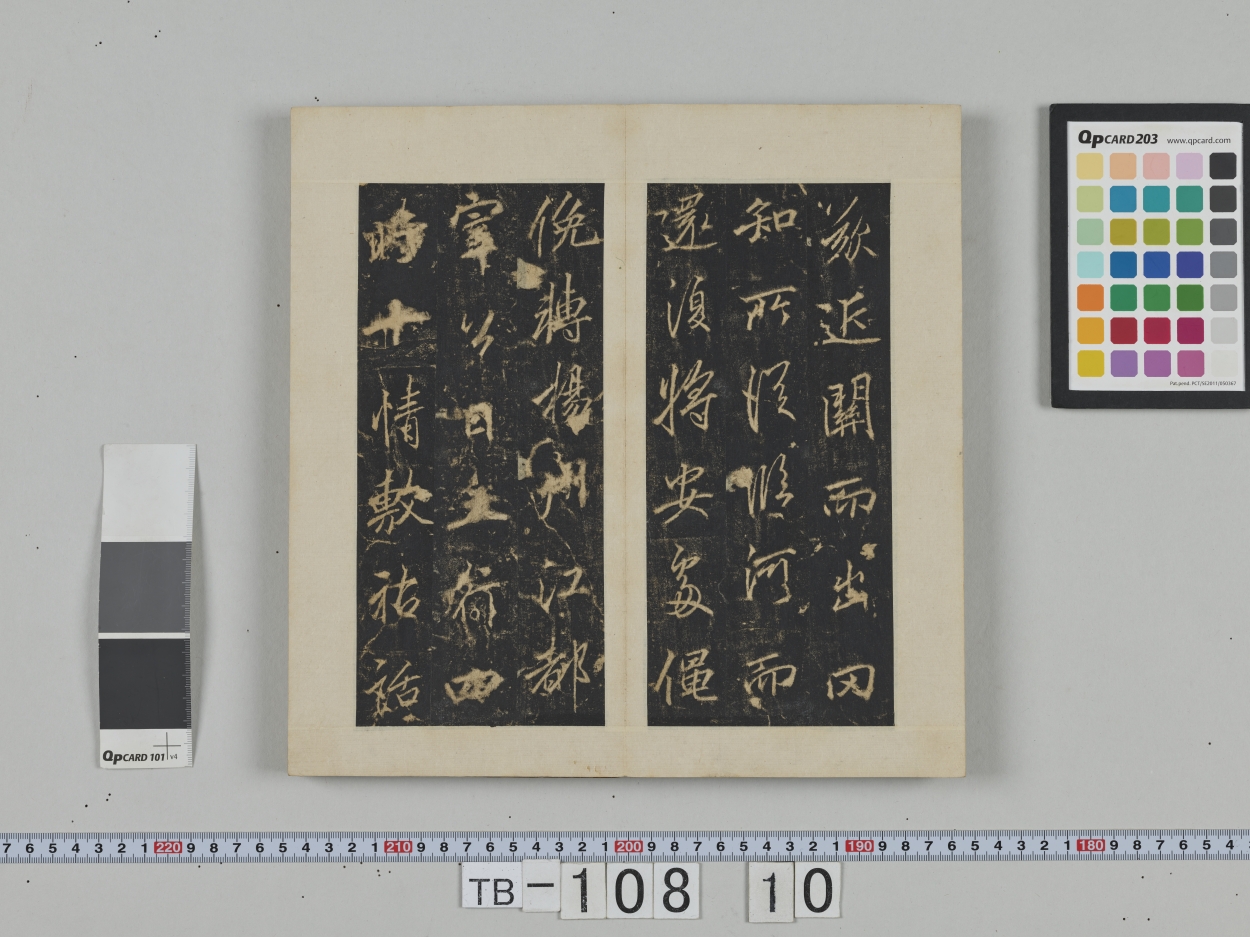 近關而出罔
知所從臨河而
還復將安處僶
俛轉揚州江都
宰公曰四
時十情敷祐
QpCARD 203 www.qpcard.com
Pat.pend. PCT/SE2011/050367
QpCARD 101 v4
7 6 5 4 3 2 1 220 9 8 7 6 5 4 3 2 1 210 9 8 7 6 5 4 3 2 1 200 9 8 7 6 5 4 3 2 1 190 9 8 7 6 5 4 3 2 1 180 9 8 7 6 5 4
TB-108 10